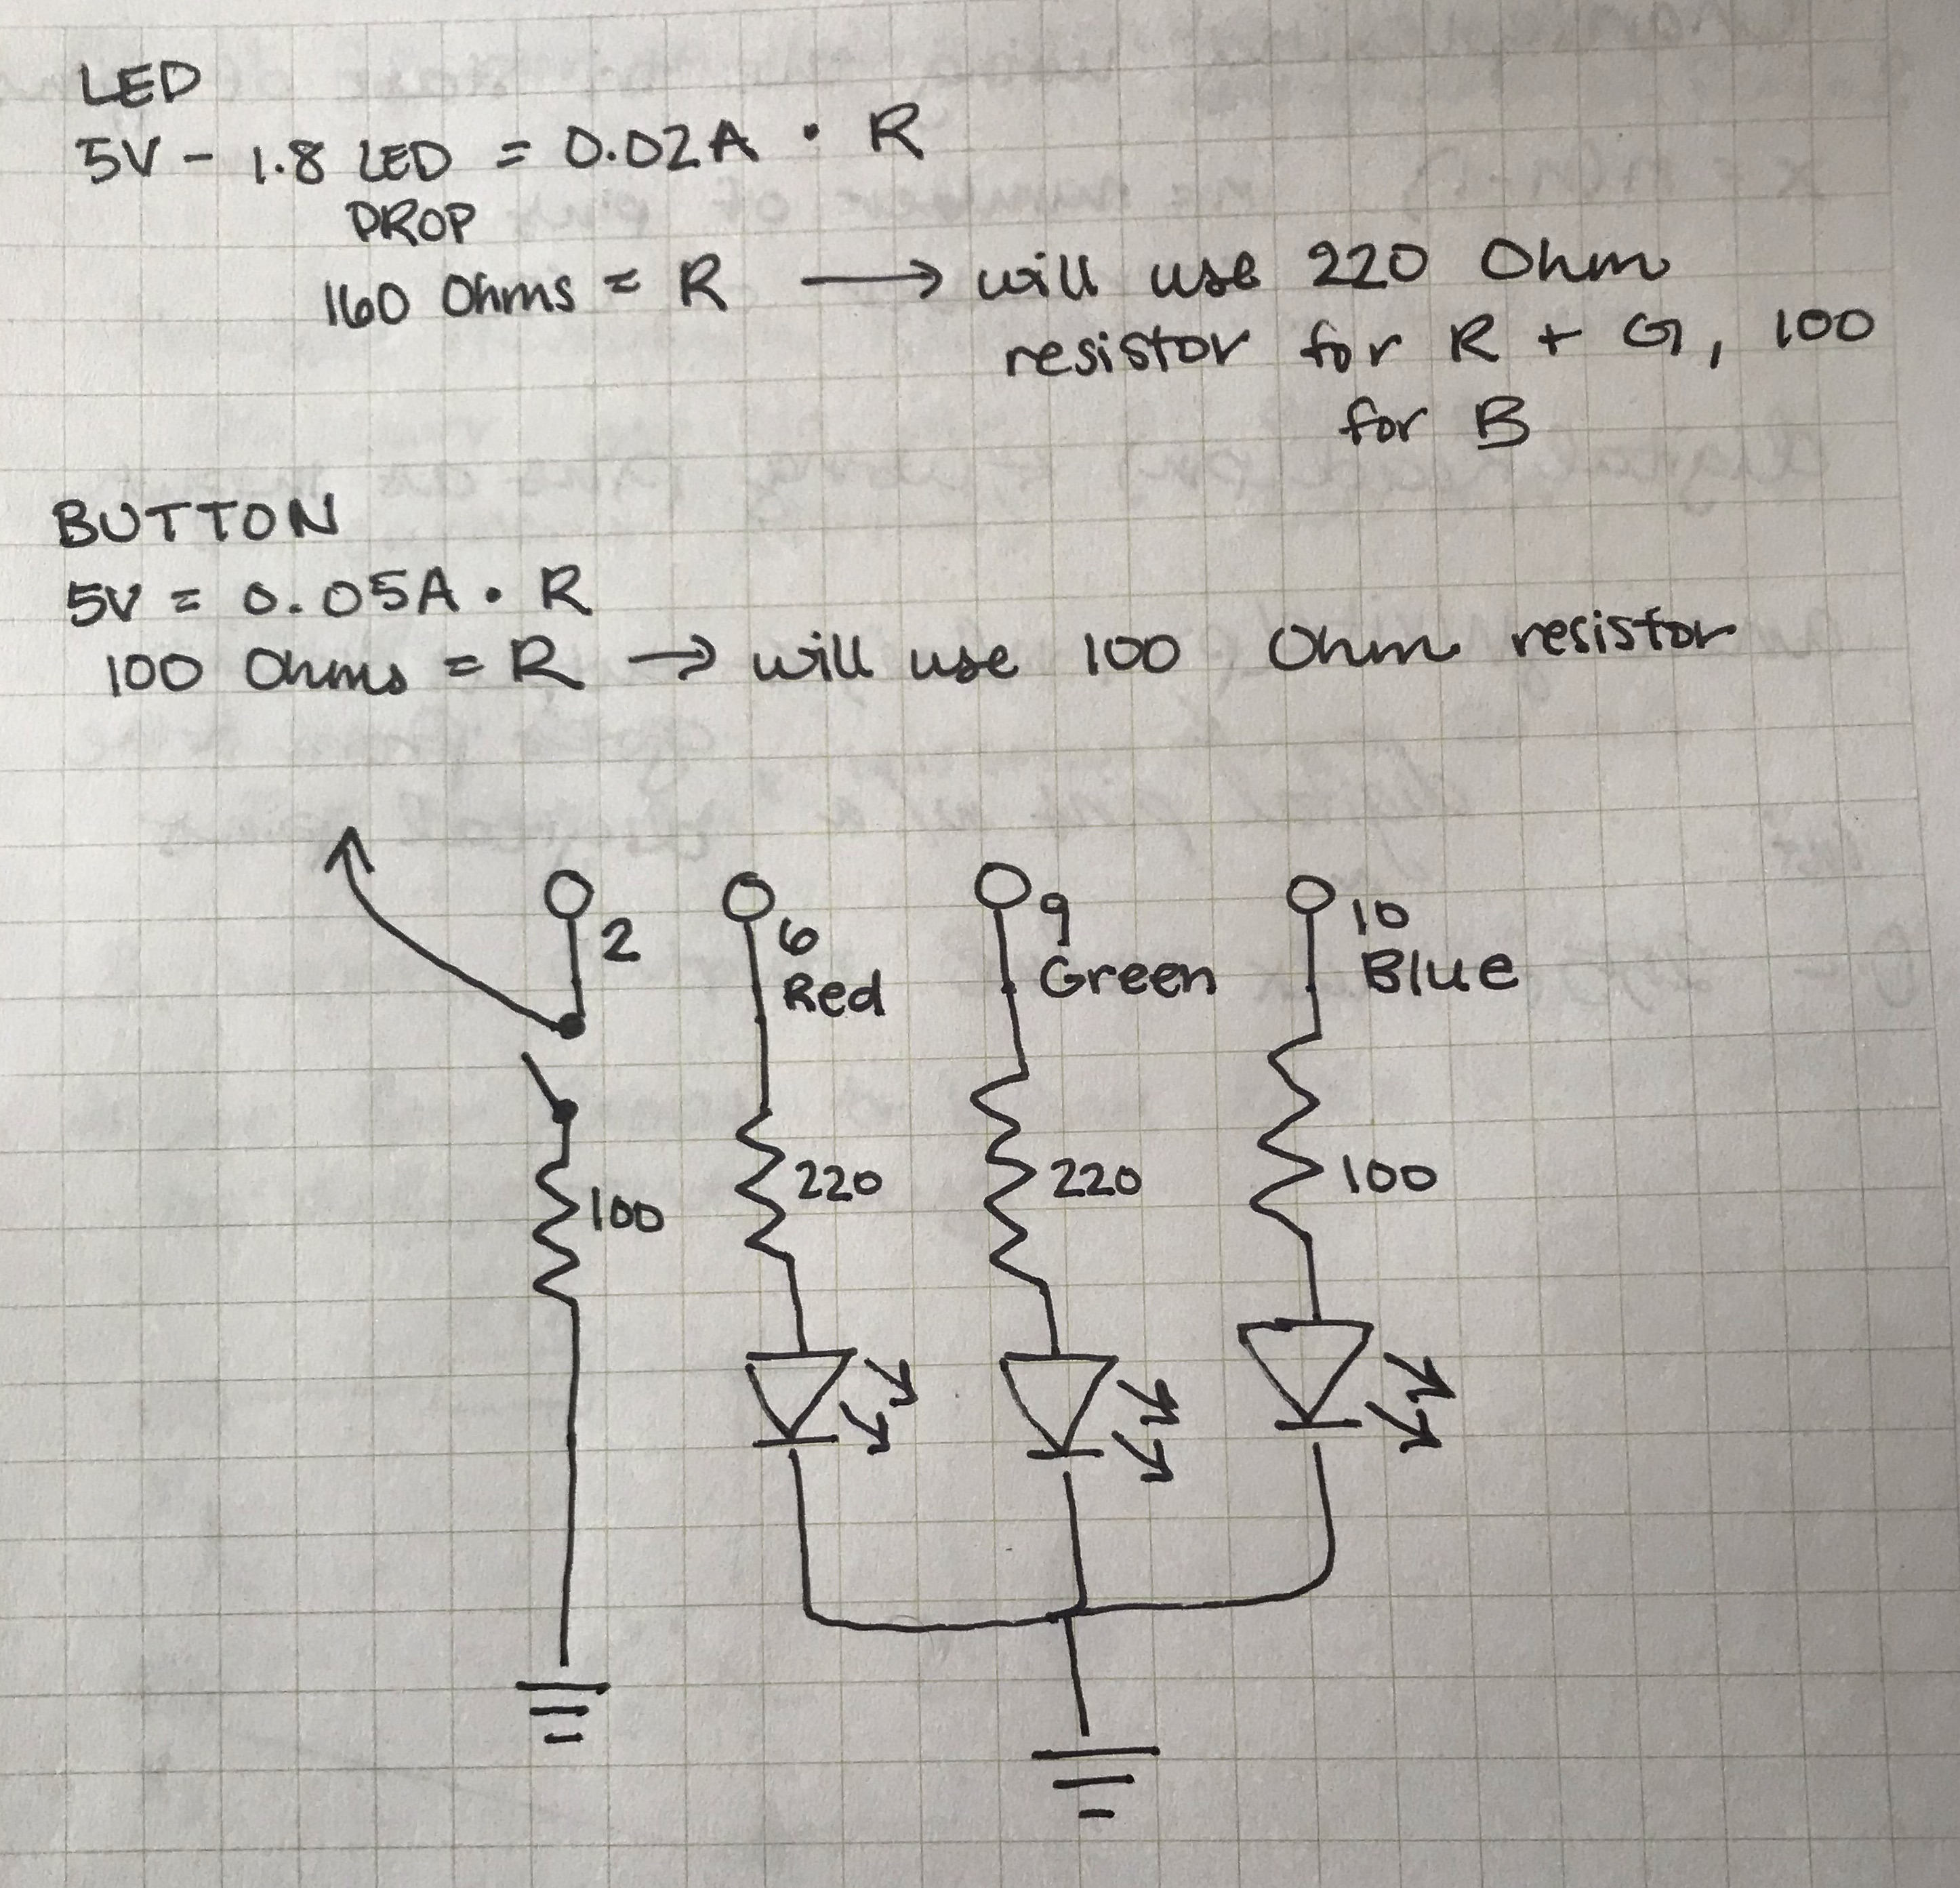 LED
5V - 1.8 LED = 0.02A • R
DROP
160 Ohms = R → will use 220 Ohm
resistor for R + G, 100
for B
BUTTON
5V = 0.05A • R
100 Ohms = R → will use 100 Ohm resistor
2
6
Red
9
Green
10
Blue
100
220
220
100